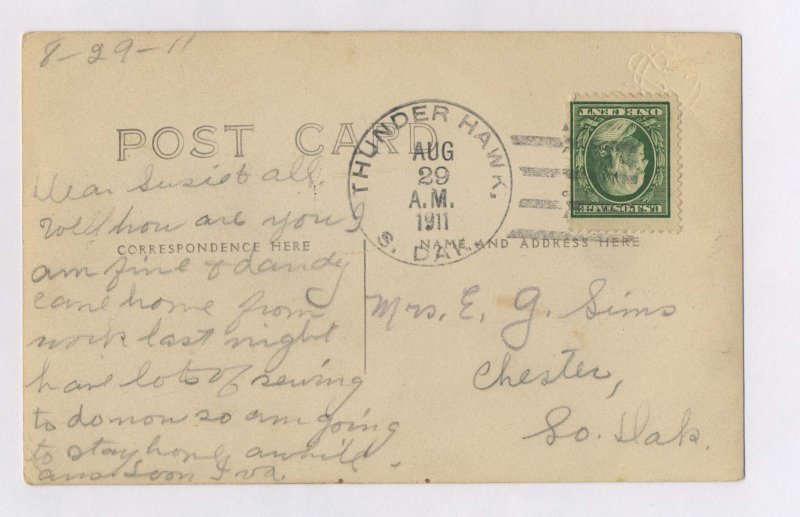 8-29-11
POST CARD
THUNDER HAWK,
AUG
29
A.M.
1911
S. DAK.
ONE CENT
U.S. POSTAGE
Dear Susie & all.
Well how are you I
CORRESPONDENCE HERE
NAME AND ADDRESS HERE
am fine & dandy
came home from
work last night
have lots of sewing
to do now so am going
to stay home awhile
ans soon Iva.
Mrs. E. G. Sims
Chester,
So. Dak.